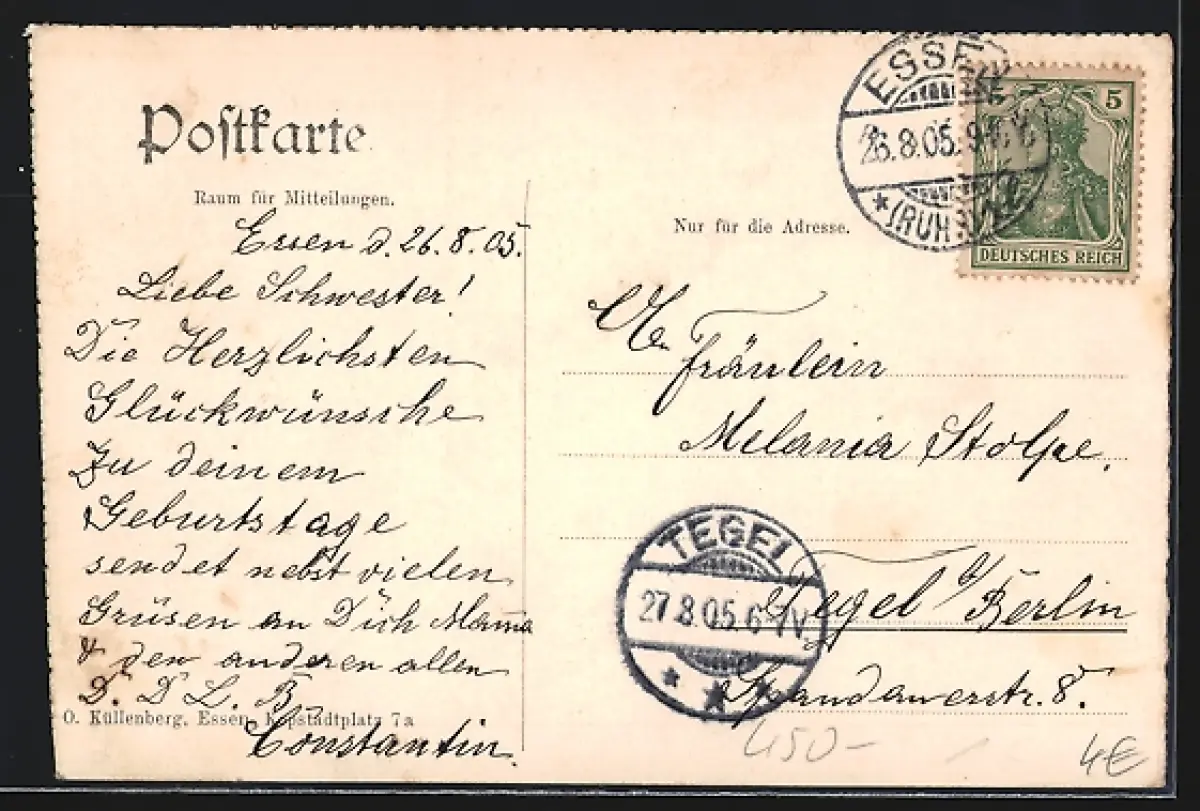 Postkarte
Raum für Mitteilungen.
Essen d. 26.8.05.
Liebe Schwester!
Die Herzlichsten
Glückwünsche
Zu deinem
Geburtstage
sendet nebst vielen
Grüsen an Dich Mama
& den anderen allen
D. D L. B
Constantin.
O. Küllenberg, Essen, Kopstadtplatz 7a
Nur für die Adresse.
ESSEN
26.8.05. 9-
* (RUHR)
5
DEUTSCHES REICH
Fräulein
Melania Stolpe.
Tegel b/Berlin
Spandauerstr. 8.
TEGEL
27.8.05. 6-7V
* *
450-
4€